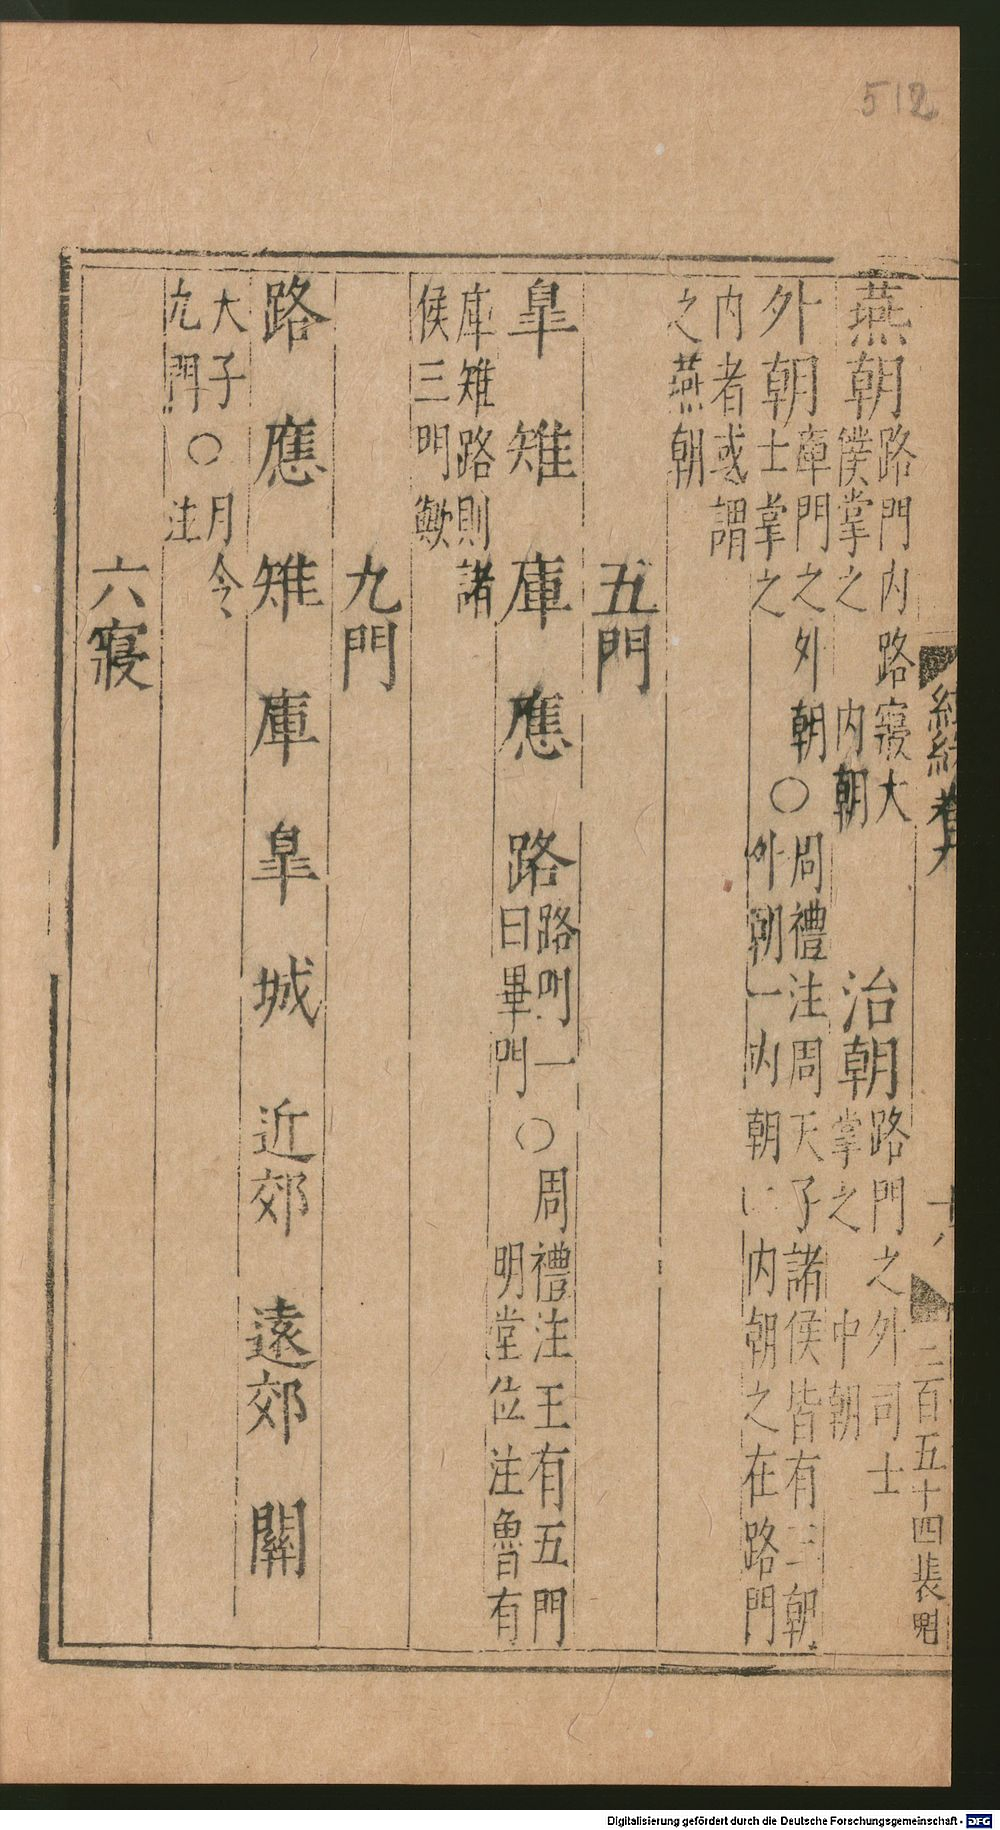 512
燕朝路門内路寢大僕掌之 内朝 治朝路門之外司士掌之 中朝
外朝庫門之外朝士掌之 外朝○周禮注周天子諸侯皆有三朝外朝一内朝二内朝之在路門
内者或謂之燕朝
五門
皐 雉 庫 應 路路門一曰畢門○周禮注王有五門明堂位注魯有
庫雉路則諸侯三門歟
九門
路 應 雉 庫 皐 城 近郊 遠郊 關
大子○月令九門注
六寢
十八
二百五十四
Digitalisierung gefördert durch die Deutsche Forschungsgemeinschaft - DFG